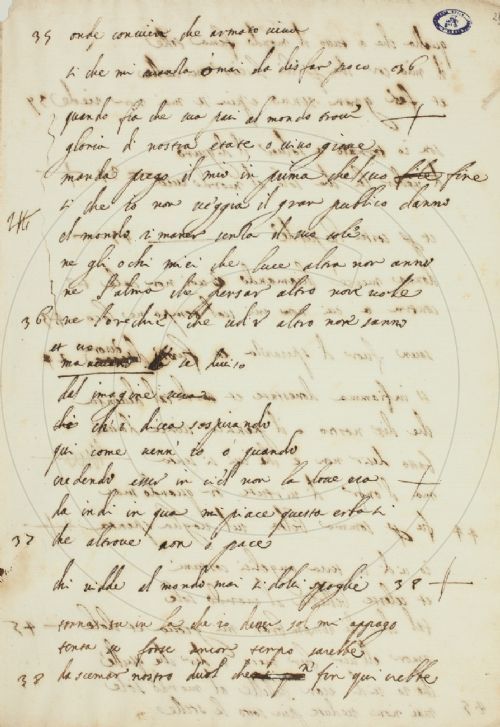 35 onde convien che armato viva
ti che mi avanza omai da disfar poco 036
quando fia che sua pari al mondo trovi
gloria di nostra etate o vivo giove
manda prego il mio in prima che suo fine
ti che io non veggia il gran publico danno
el mondo rimaner senza il suo sole
ne gli ochi miei che luce altra non anno
ne l'alma che pensar altro non vole
36 ne l'orechie che udir altro non sanno
et
se diviso
dal imagine vera
ch'i dicea sospirando
qui come venn' io o quando
credendo esser in ciel non la dove era
da indi in qua mi piace questa erba ti
37 che altrove non o pace
chi vidde al mondo mai ti dolci spoglie 38
torna tu in la che io d'esser sol mi appago
senza se forse ancor tempo sarebbe
38 da scemar nostro duol fin qui crebbe